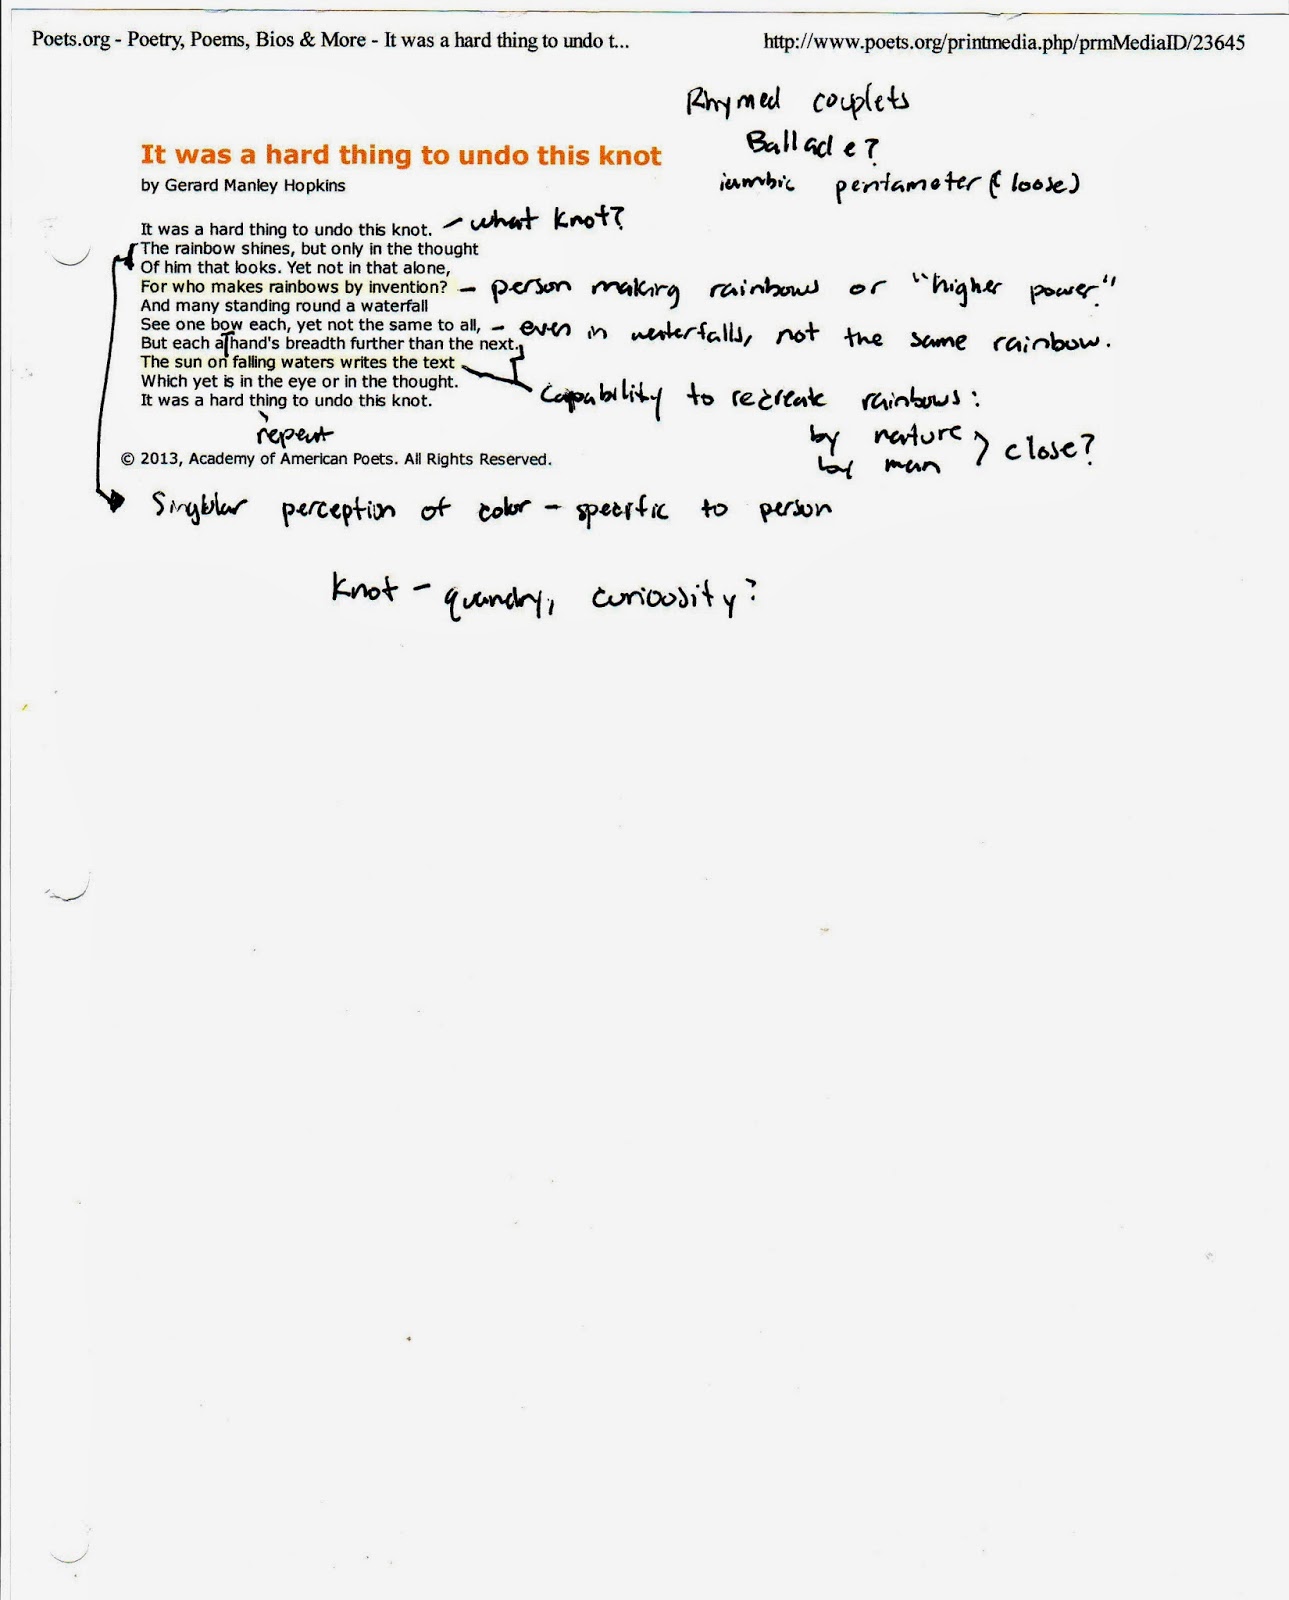 Poets.org - Poetry, Poems, Bios & More - It was a hard thing to undo t... http://www.poets.org/printmedia.php/prmMediaID/23645
Rhymed couplets
Ballade?
iambic pentameter (loose)
It was a hard thing to undo this knot
by Gerard Manley Hopkins
It was a hard thing to undo this knot. - what knot?
The rainbow shines, but only in the thought
Of him that looks. Yet not in that alone,
For who makes rainbows by invention? - person making rainbows or "higher power."
And many standing round a waterfall
See one bow each, yet not the same to all, - even in waterfalls, not the same rainbow.
But each a hand's breadth further than the next.
The sun on falling waters writes the text
Which yet is in the eye or in the thought.
capability to recreate rainbows:
It was a hard thing to undo this knot.
repeat
by nature
by man
close?
© 2013, Academy of American Poets. All Rights Reserved.
Singular perception of color - specific to person
Knot - quandry, curiousity?